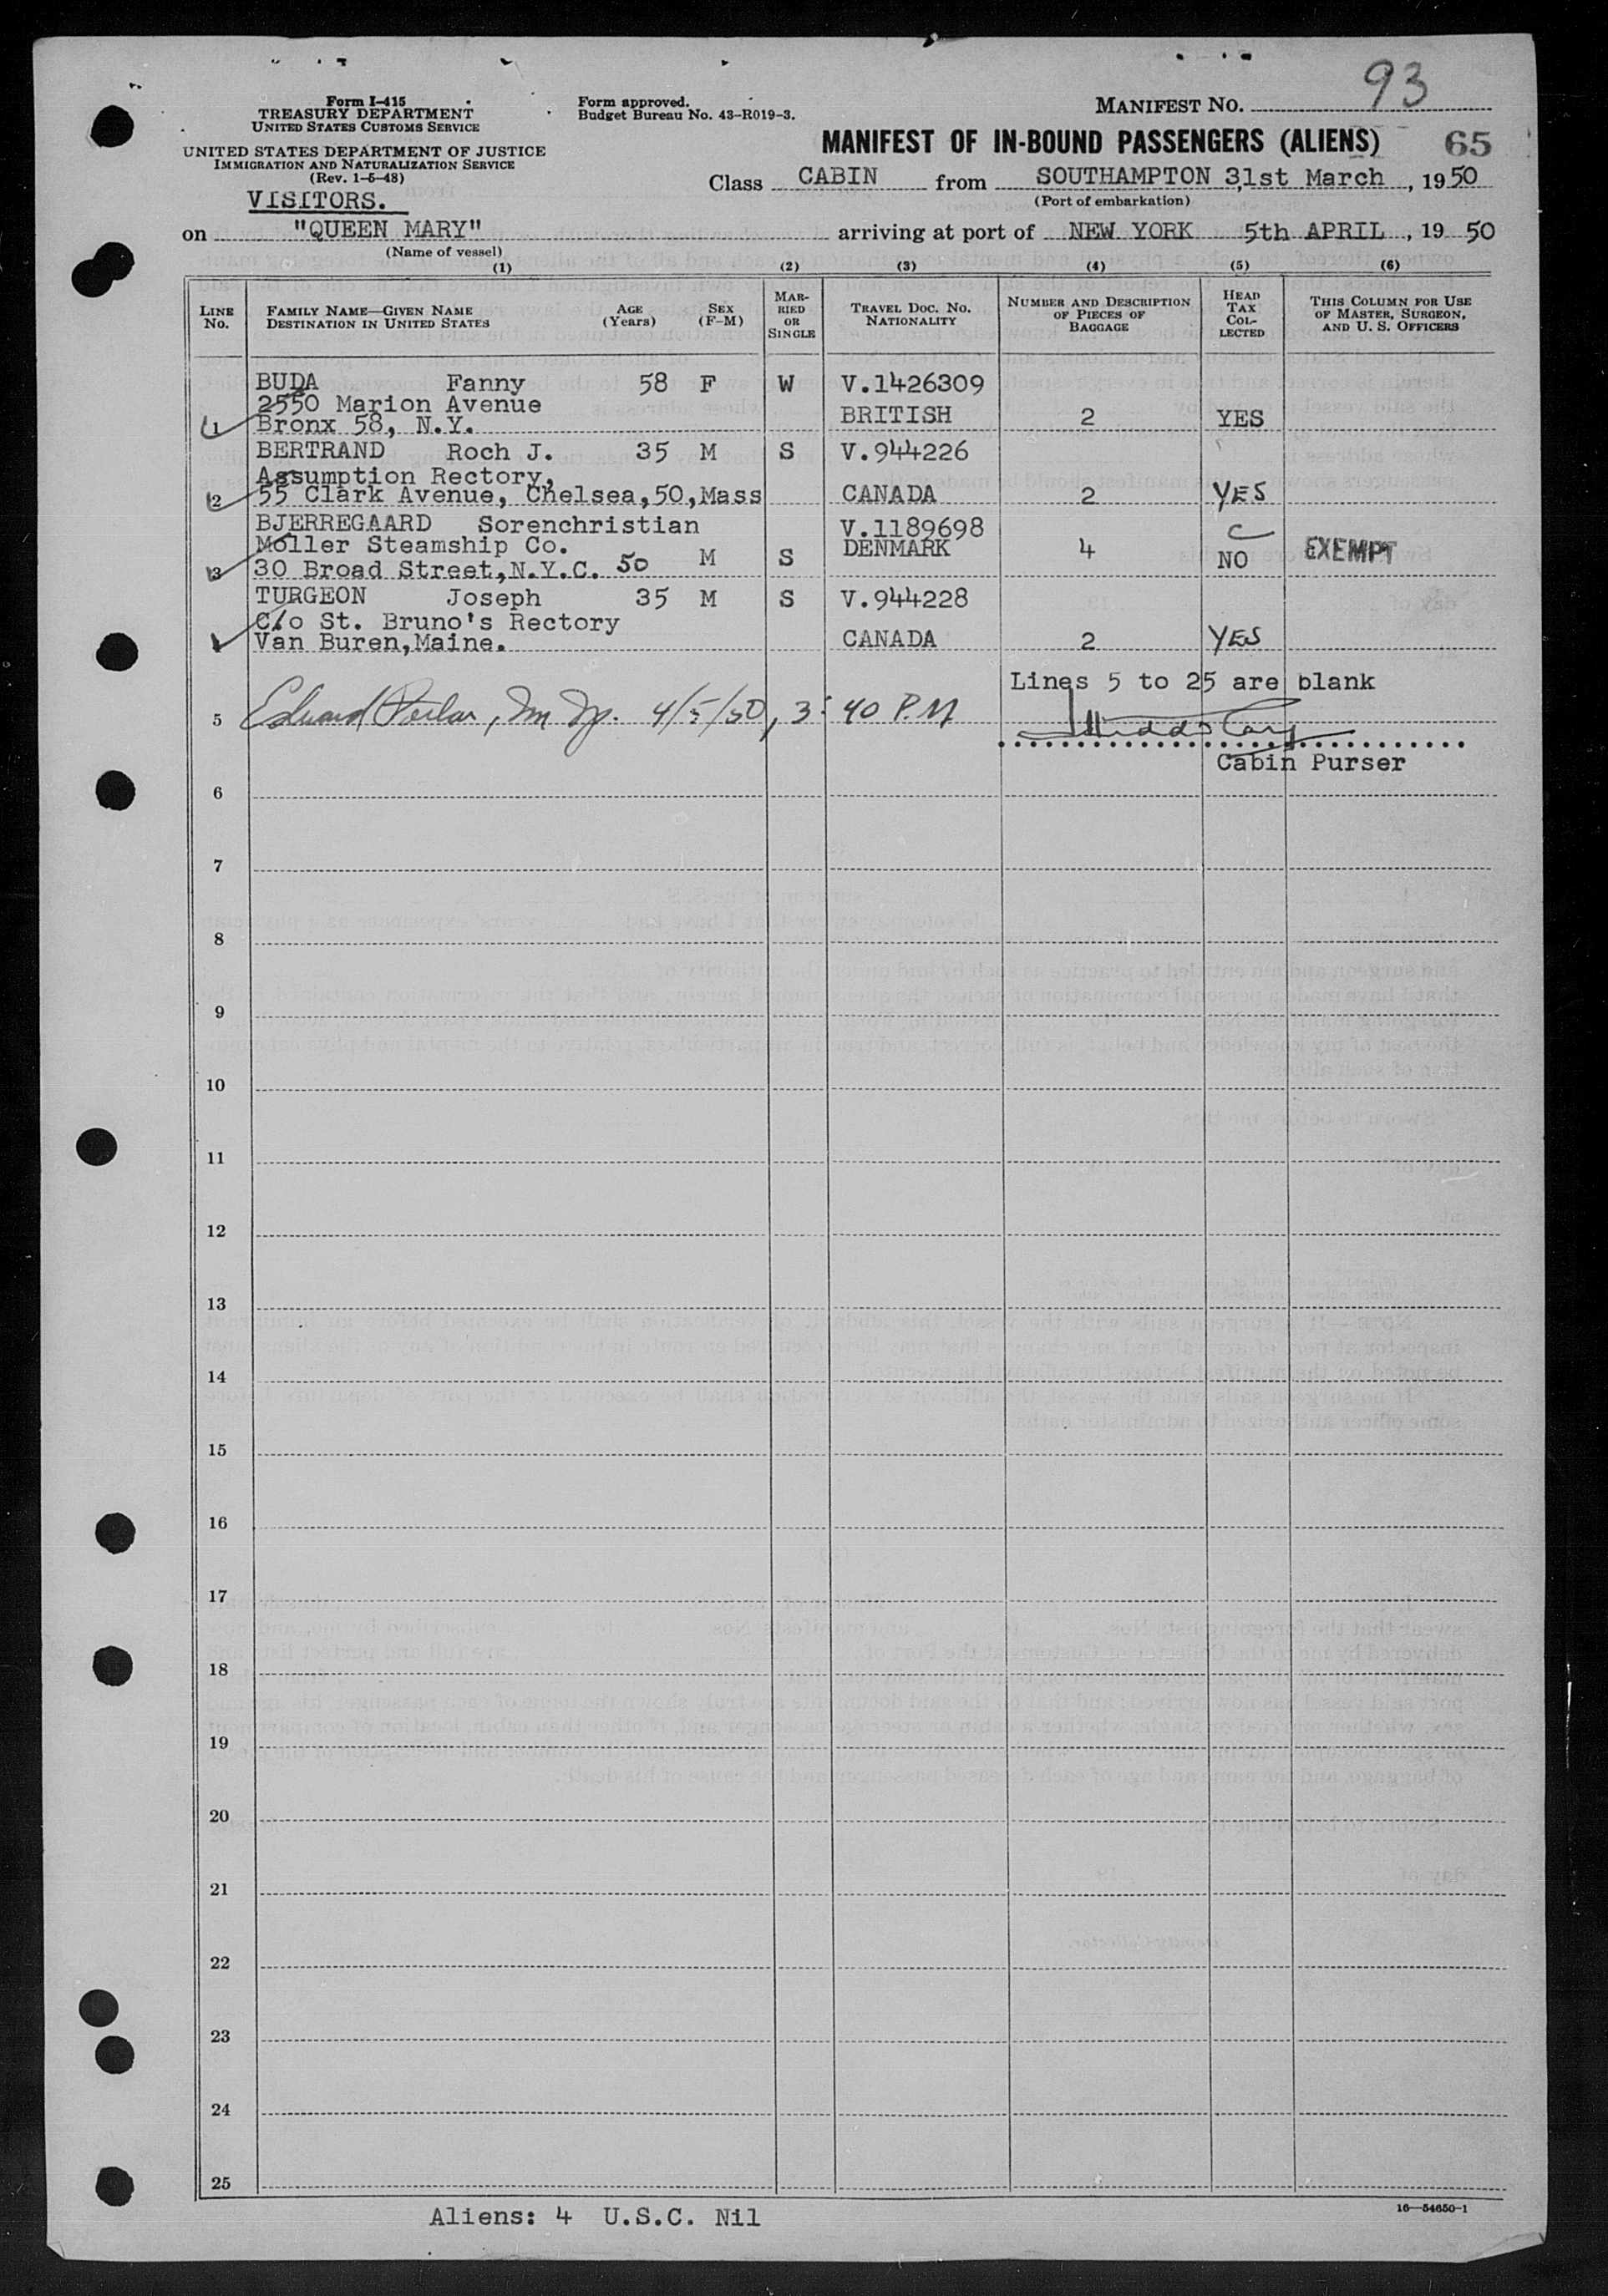 93
Form I-415
TREASURY DEPARTMENT
UNITED STATES CUSTOMS SERVICE
UNITED STATES DEPARTMENT OF JUSTICE
IMMIGRATION AND NATURALIZATION SERVICE
(Rev. 1-5-48)
VISITORS.
Form approved.
Budget Bureau No. 43-R019-3.
MANIFEST NO.
MANIFEST OF IN-BOUND PASSENGERS (ALIENS) 65
Class CABIN from SOUTHAMPTON 31st March, 1950
(Port of embarkation)
on "QUEEN MARY" arriving at port of NEW YORK 5th APRIL, 19 50
(Name of vessel)
(1) (2) (3) (4) (5) (6)
LINE No.
FAMILY NAME—GIVEN NAME
DESTINATION IN UNITED STATES
AGE (Years)
SEX (F-M)
MARRIED OR SINGLE
TRAVEL DOC. NO. NATIONALITY
NUMBER AND DESCRIPTION OF PIECES OF BAGGAGE
HEAD TAX COLLECTED
THIS COLUMN FOR USE OF MASTER, SURGEON, AND U. S. OFFICERS
BUDA Fanny 58 F W V.1426309
2550 Marion Avenue BRITISH 2 YES
1 Bronx 58, N.Y.
BERTRAND Roch J. 35 M S V.944226
Assumption Rectory,
2 55 Clark Avenue, Chelsea,50,Mass CANADA 2 YES
BJERREGAARD Sorenchristian V.1189698 C
Moller Steamship Co. DENMARK 4 EXEMPT
3 30 Broad Street,N.Y.C. 50 M S NO
TURGEON Joseph 35 M S V.944228
C/o St. Bruno's Rectory
Van Buren,Maine. CANADA 2 YES
Lines 5 to 25 are blank
5 Edward 4/5/50, 3:40 P.M
Cabin Purser
6
7
8
9
10
11
12
13
14
15
16
17
18
19
20
21
22
23
24
25
Aliens: 4 U.S.C. Nil
16—54650-1